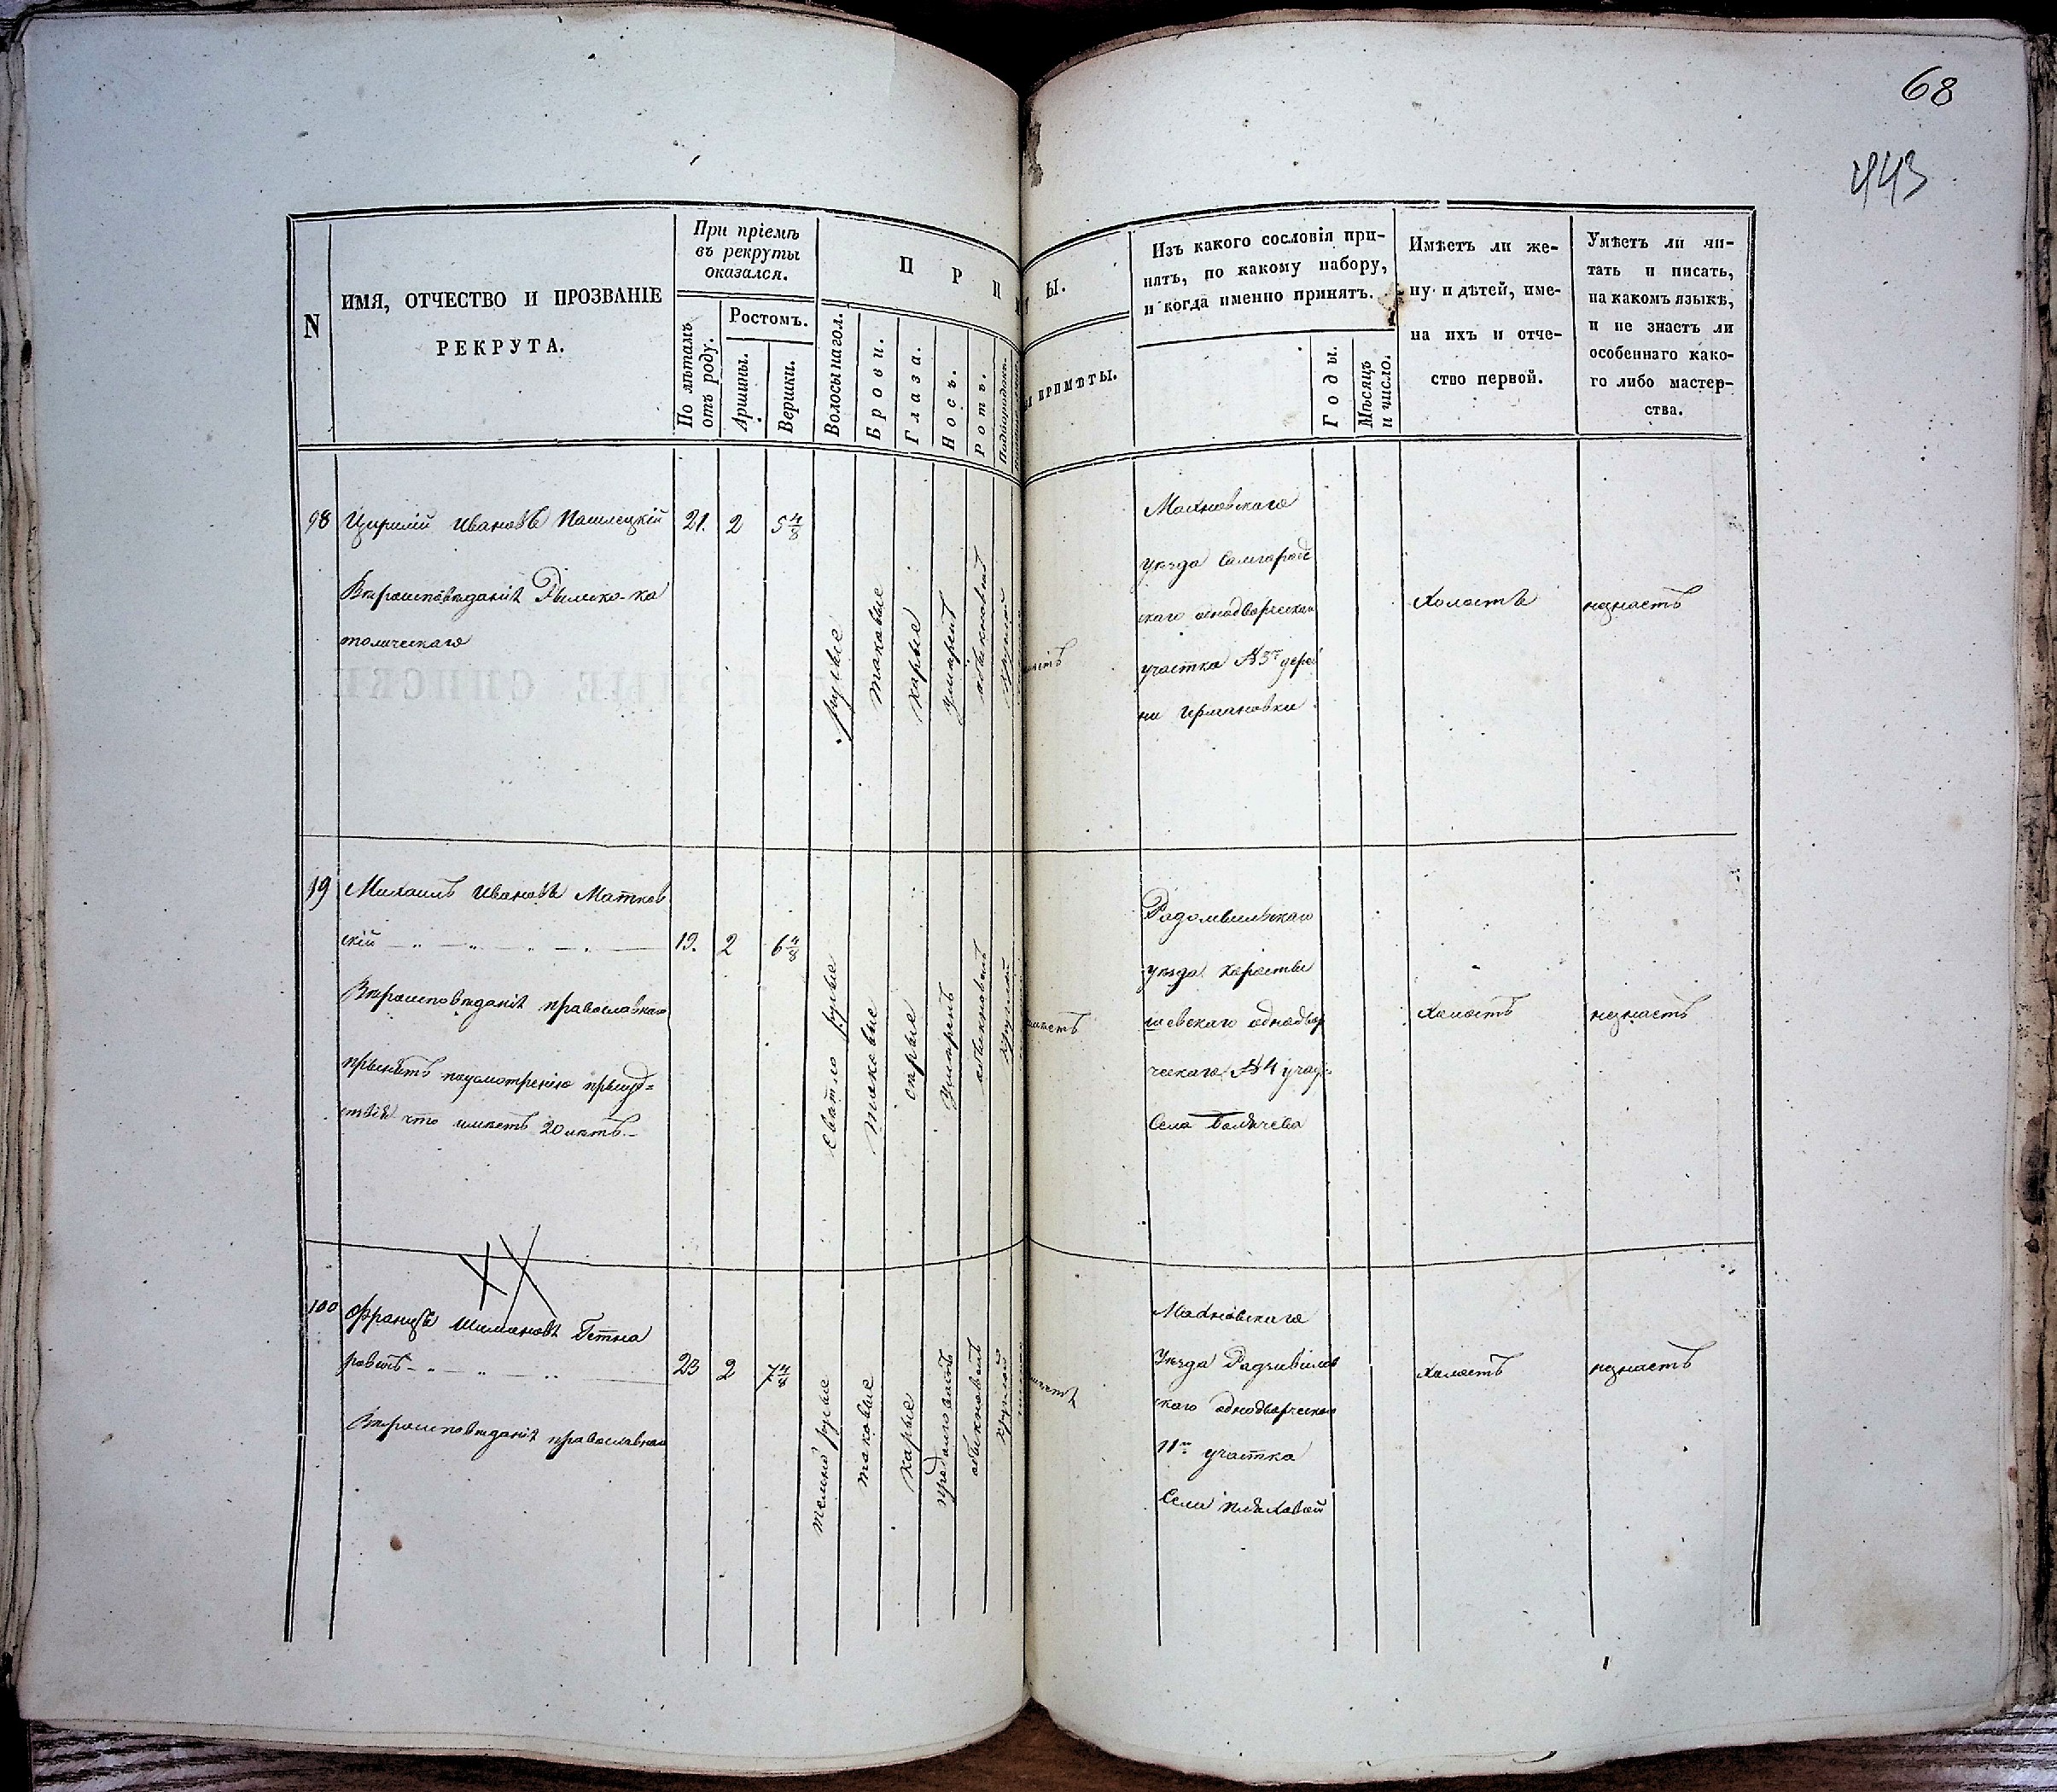 68
443
N
ИМЯ, ОТЧЕСТВО И ПРОЗВАНІЕ
РЕКРУТА.
При пріемѣ
въ рекруты
оказался.
По лѣтамъ
отъ роду.
Ростомъ.
Аршины.
Вершки.
П Р И
Ы.
Волосы на гол.
Брови.
Глаза.
Носъ.
Ротъ.
Подбородокъ.
ПРИМѢТЫ.
Изъ какого сословія при-
нятъ, по какому набору,
и когда именно принятъ.
Годы.
Мѣсяцъ
и число.
Имѣетъ ли же-
ну и дѣтей, име-
на ихъ и отче-
ство первой.
Умѣетъ ли чи-
тать и писать,
на какомъ языкѣ,
и не знаетъ ли
особеннаго како-
го либо мастер-
ства.
98
Ивановъ
21.
2
5 4/8
Вѣроисповѣданія Римско-ка
толическаго
русые
таковые
карые
умѣрен
обыкновен
круглый
Махновскаго
уѣзда Самгород
скаго однодворческаго
участка №3го дерев
ни Германовки
Холостъ
незнаетъ
99
Михаилъ Ивановъ Матков
скій
19.
2
6 4/8
Вѣроисповѣданія православнаго
принятъ поусмотренію присуд=
ствія что имѣетъ 20 летъ.
светло русые
таковые
серые
умѣренъ
обыкновенъ
круглый
Радомысльскаго
уѣзда Корости
шевскаго однодвор
ческаго №4 учас
Села
Холостъ
незнаетъ
100
Францъ Шимановъ
23
2
7 4/8
Вѣроисповѣданія православнаго
темно русые
таковые
карые
продолговатъ
обыкновенъ
круглой
Махновскаго
Уѣзда Радзивилов
скаго однодворческаго
11го участка
Села Пляховой
Холостъ
незнаетъ